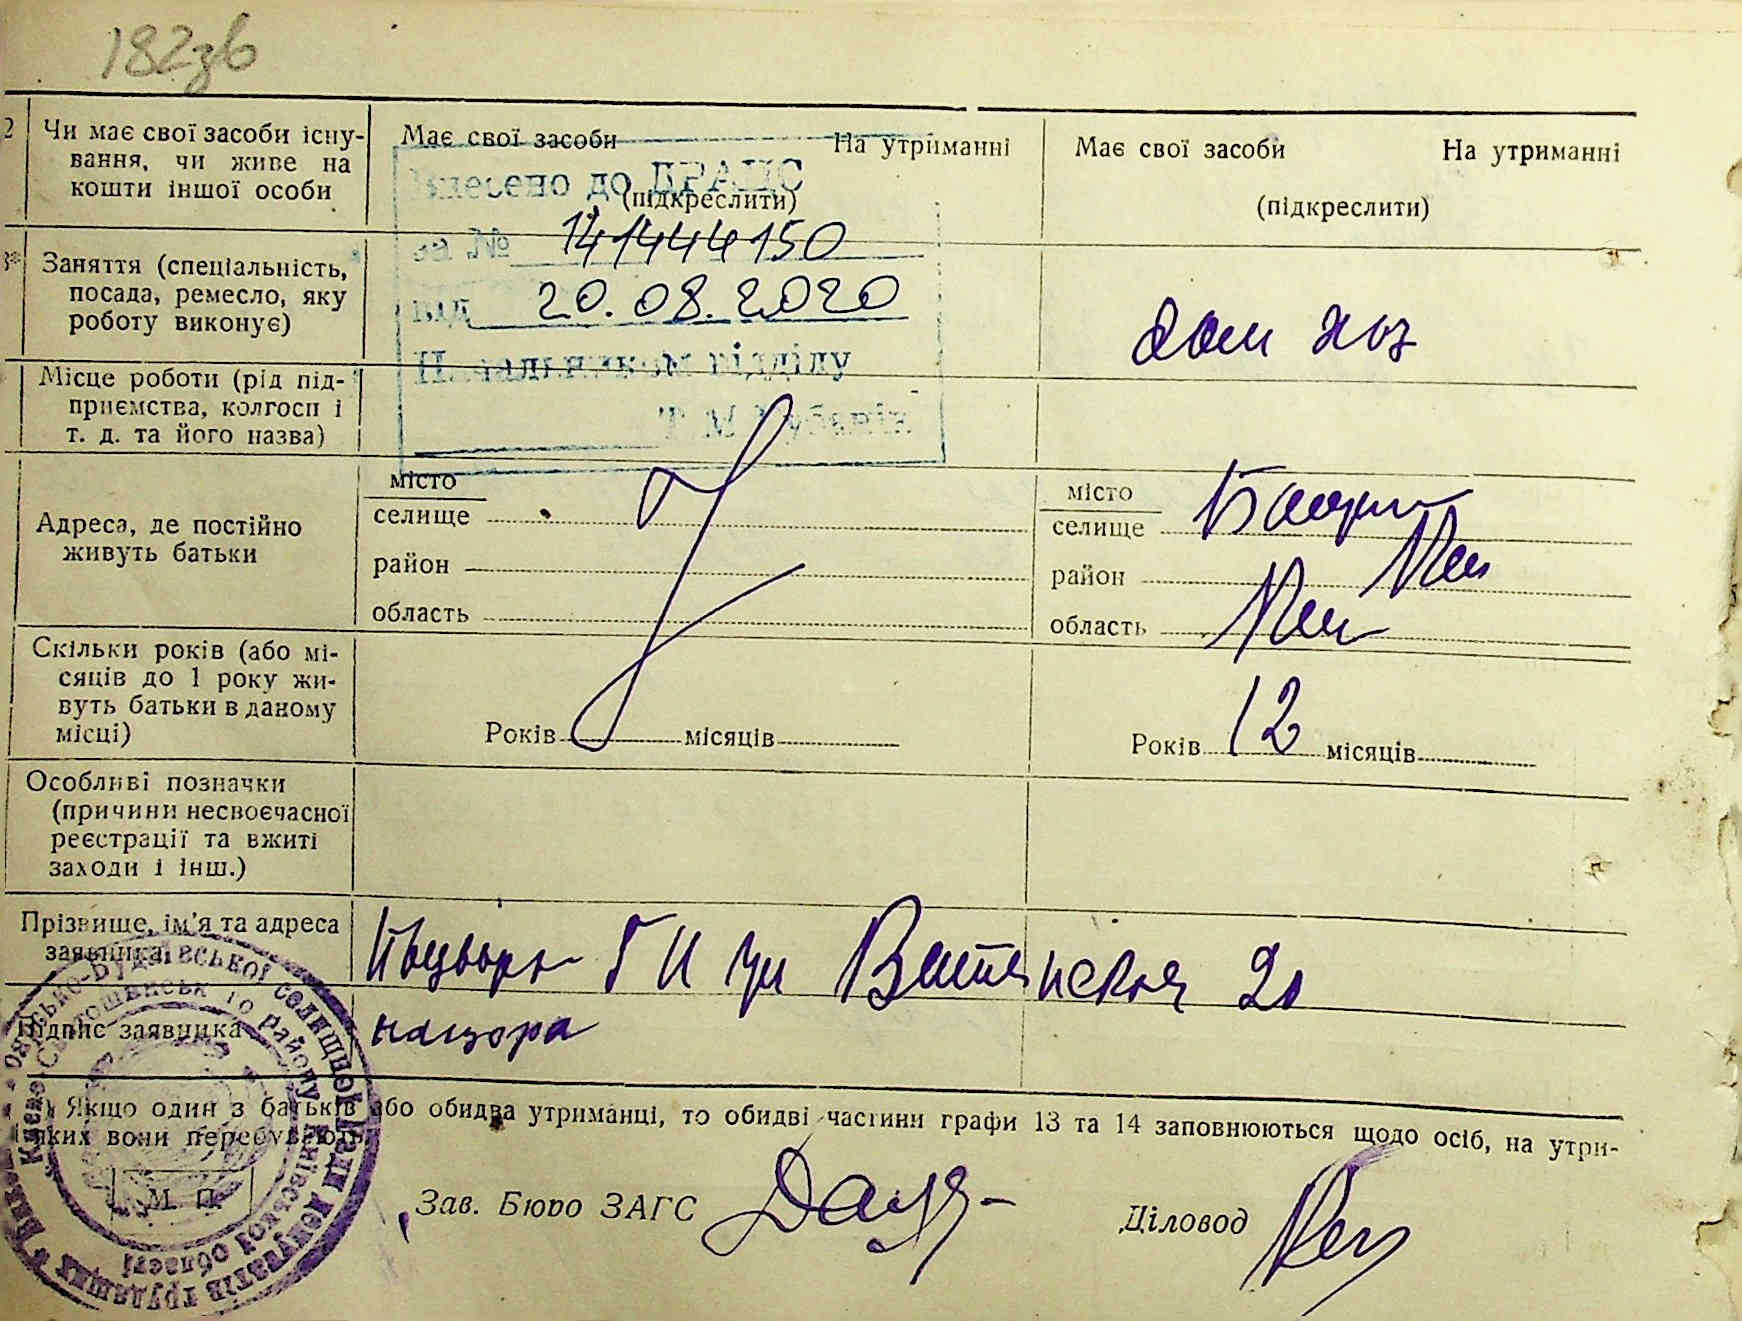 182зв
2 Чи має свої засоби існу-
вання, чи живе на
кошти іншої особи
Має свої засоби На утриманні
(підкреслити)
Має свої засоби На утриманні
(підкреслити)
Внесено до ДРАЦС
за № 141444150
від 20.08.2020
Начальником відділу
Т М
3* Заняття (спеціальність,
посада, ремесло, яку
роботу виконує)
дом хоз
Місце роботи (рід під-
приємства, колгосп і
т. д. та його назва)
Адреса, де постійно
живуть батьки
місто
селище
район
область
місто
селище
район
область
Скільки років (або мі-
сяців до 1 року жи-
вуть батьки в даному
місці)
Років місяців
Років 12 місяців
Особливі позначки
(причини несвоєчасної
реєстрації та вжиті
заходи і інш.)
Прізвище, ім'я та адреса
заявника
Підпис заявника
) Якщо один з батьків або обидва утриманці, то обидві частини графи 13 та 14 заповнюються щодо осіб, на утри-
яких вони перебувають
М. П.
Зав. Бюро ЗАГС
Діловод